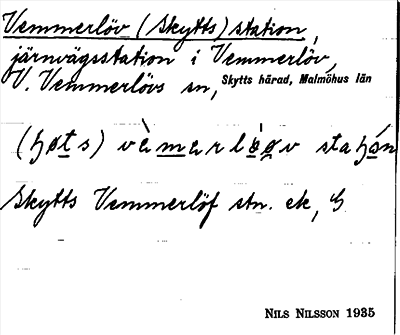 Vemmerlöv (Skytts) station,
järnvägsstation i Vemmerlöv,
V. Vemmerlövs sn, Skytts härad, Malmöhus län
vàmarlòov stahón
Skytts Vemmerlöf stn. ek, G
NILS NILSSON 1935